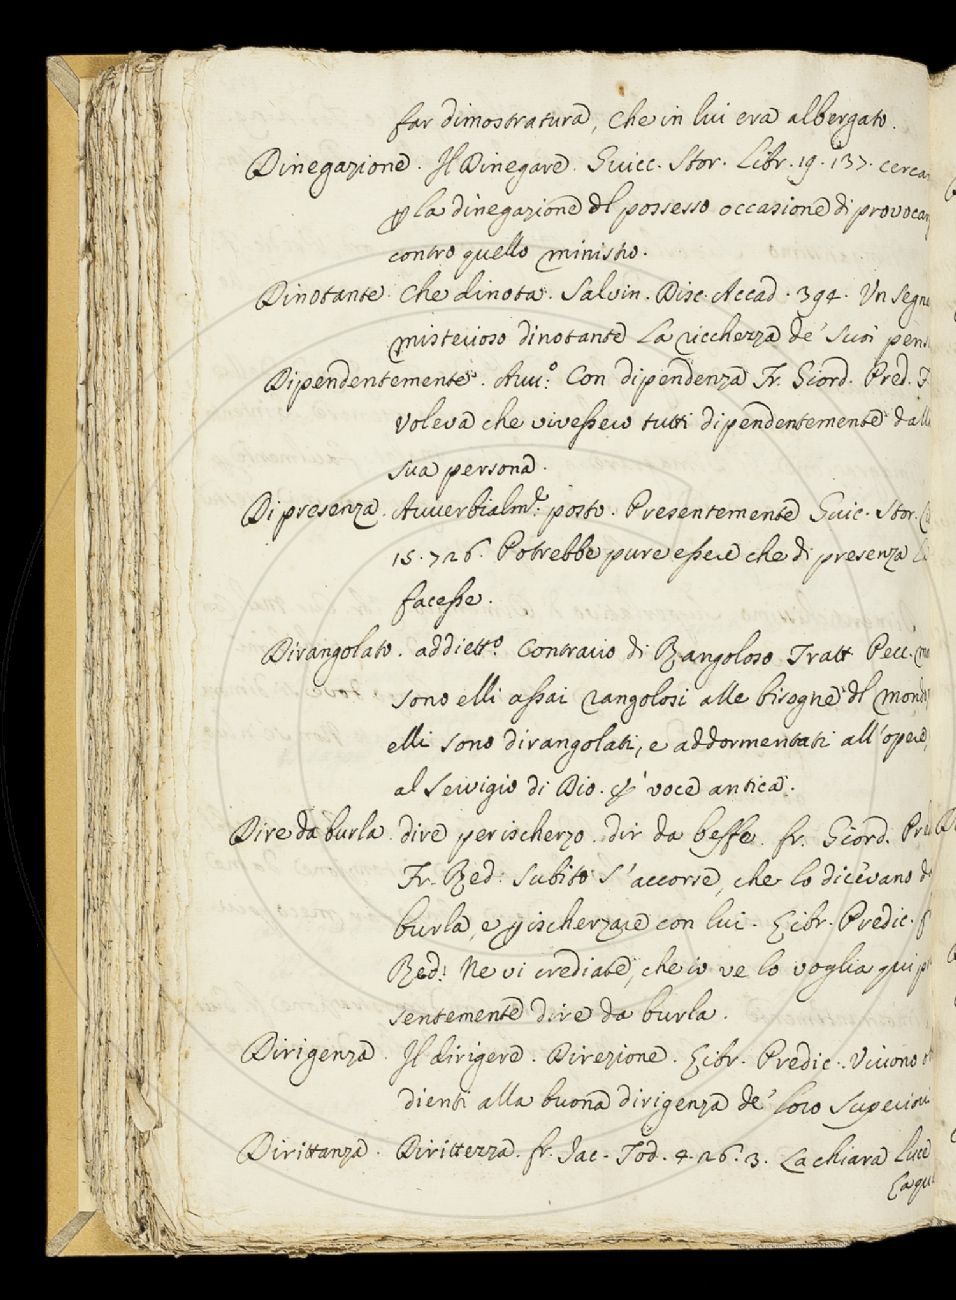 far dimostratura, che in lui era albergato.
Dinegazione. Il Dinegare. Guicc. Stor. Libr. 19. 137. cerca
p la dinegazione dl possesso occasione di provocar
contro quello ministro.
Dinotante. Che dinota. Salvin. Disc. Accad. 394. Un segno
misterioso dinotante la ricchezza de' suoi pens
Dipendentemente. Avv:o Con dipendenza Fr. Giord. Pred.
Voleva che vivessero tutti dipendentemente dall
sua persona.
Di presenza. Avverbialm:e posto. Presentemente Guic. Stor.
15. 726. Potrebbe pure essere che di presenza
facesse.
Dirangolato. addiett:o Contrario di Rangoloso Tratt Pecc.
sono elli assai rangolosi alle bisogne dl mond
elli sono dirangolati, e addormentati all'opere,
al servigio di Dio. è voce antica.
Dire da burla. dire per ischerzo. dir da beffe. fr. Giord.
Fr. Red: subito s'accorse, che lo dicevano d
burla, e p ischerzare con lui. Libr. Predic.
Red: Ne vi crediate, che io ve lo voglia qui
sentemente dire da burla.
Dirigenza. Il dirigere. Direzione. Libr. Predic. Vivono
dienti alla buona dirigenza de' loro Superiori
Dirittanza. Dirittezza. fr. Jac. Tod. 4. 26. 3. La chiara luce